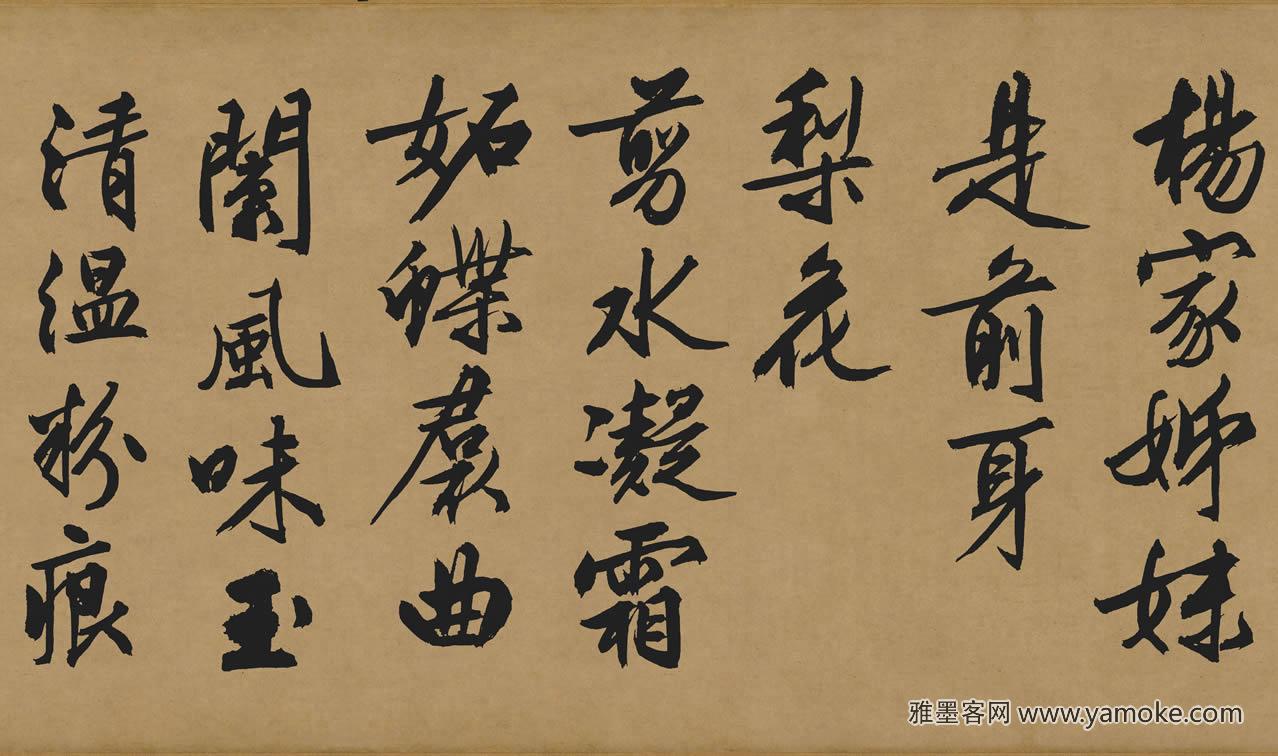 楊家姊妹
是前身
梨花
剪水凝霜
妬蝶裠曲
闌風味玉
清温粉痕
雅墨客网 www.yamoke.com